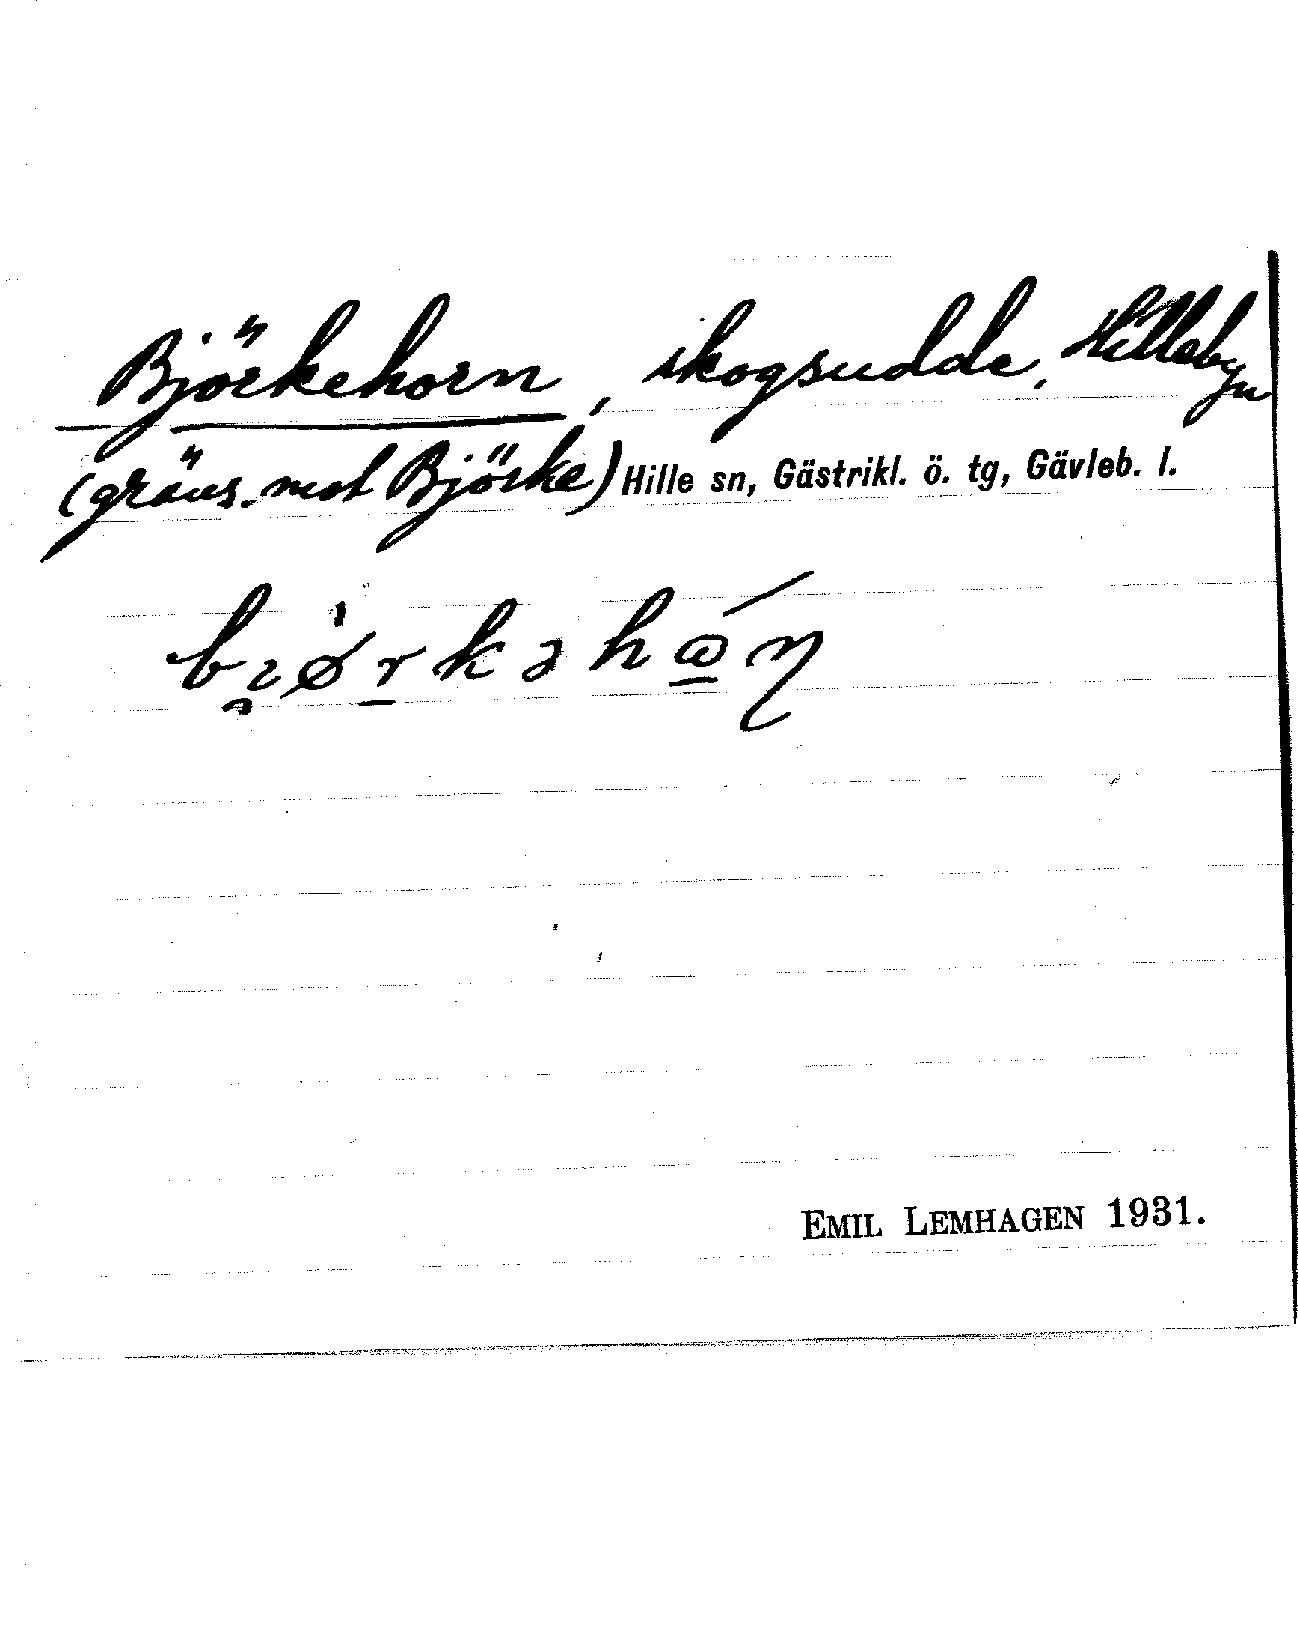 Björkehorn, skogsudde, Hillebyn
(gräns mot Björke) Hille sn, Gästrikl. ö. tg, Gävleb. l.
bɿørkəhɷ́ɳ
EMIL LEMHAGEN 1931.